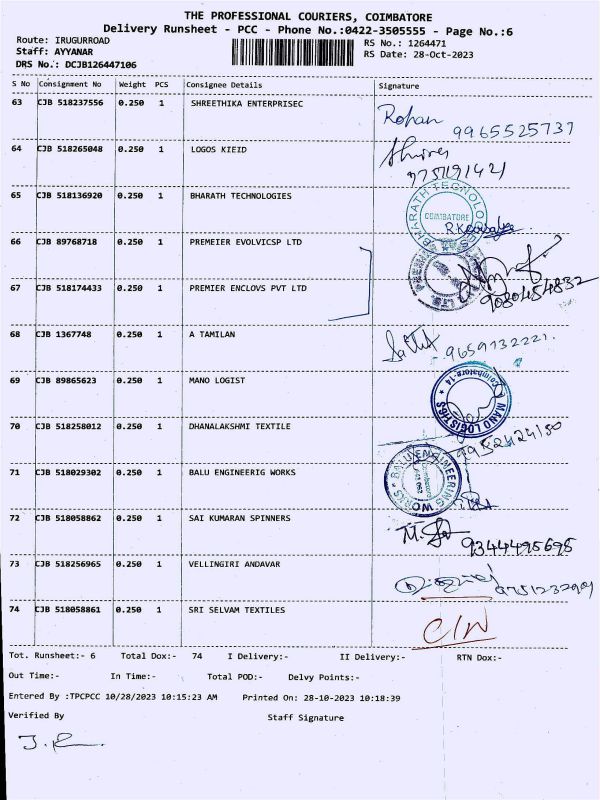 THE PROFESSIONAL COURIERS, COIMBATORE
Delivery Runsheet - PCC - Phone No.:0422-3505555 - Page No.:6
Route: IRUGURROAD
RS No.: 1264471
Staff: AYYANAR
RS Date: 28-Oct-2023
DRS No.: DCJB126447106
S No Consignment No Weight PCS Consignee Details Signature
63 CJB 518237556 0.250 1 SHREETHIKA ENTERPRISEC Rohan 9965525737
64 CJB 518265048 0.250 1 LOGOS KIEID
65 CJB 518136920 0.250 1 BHARATH TECHNOLOGIES BHARATH TECNOLOGIES COIMBATORE
66 CJB 89768718 0.250 1 PREMEIER EVOLVICSP LTD
67 CJB 518174433 0.250 1 PREMIER ENCLOVS PVT LTD 9080454832
68 CJB 1367748 0.250 1 A TAMILAN 9659132221
69 CJB 89865623 0.250 1 MANO LOGIST MANO LOGISTICS Coimbatore-14
70 CJB 518258012 0.250 1 DHANALAKSHMI TEXTILE 9952424150
71 CJB 518029302 0.250 1 BALU ENGINEERIG WORKS BALU ENGINEERING WORKS
72 CJB 518058862 0.250 1 SAI KUMARAN SPINNERS 9344495695
73 CJB 518256965 0.250 1 VELLINGIRI ANDAVAR
74 CJB 518058861 0.250 1 SRI SELVAM TEXTILES C/N
Tot. Runsheet:- 6 Total Dox:- 74 I Delivery:- II Delivery:- RTN Dox:-
Out Time:- In Time:- Total POD:- Delvy Points:-
Entered By :TPCPCC 10/28/2023 10:15:23 AM Printed On: 28-10-2023 10:18:39
Verified By Staff Signature